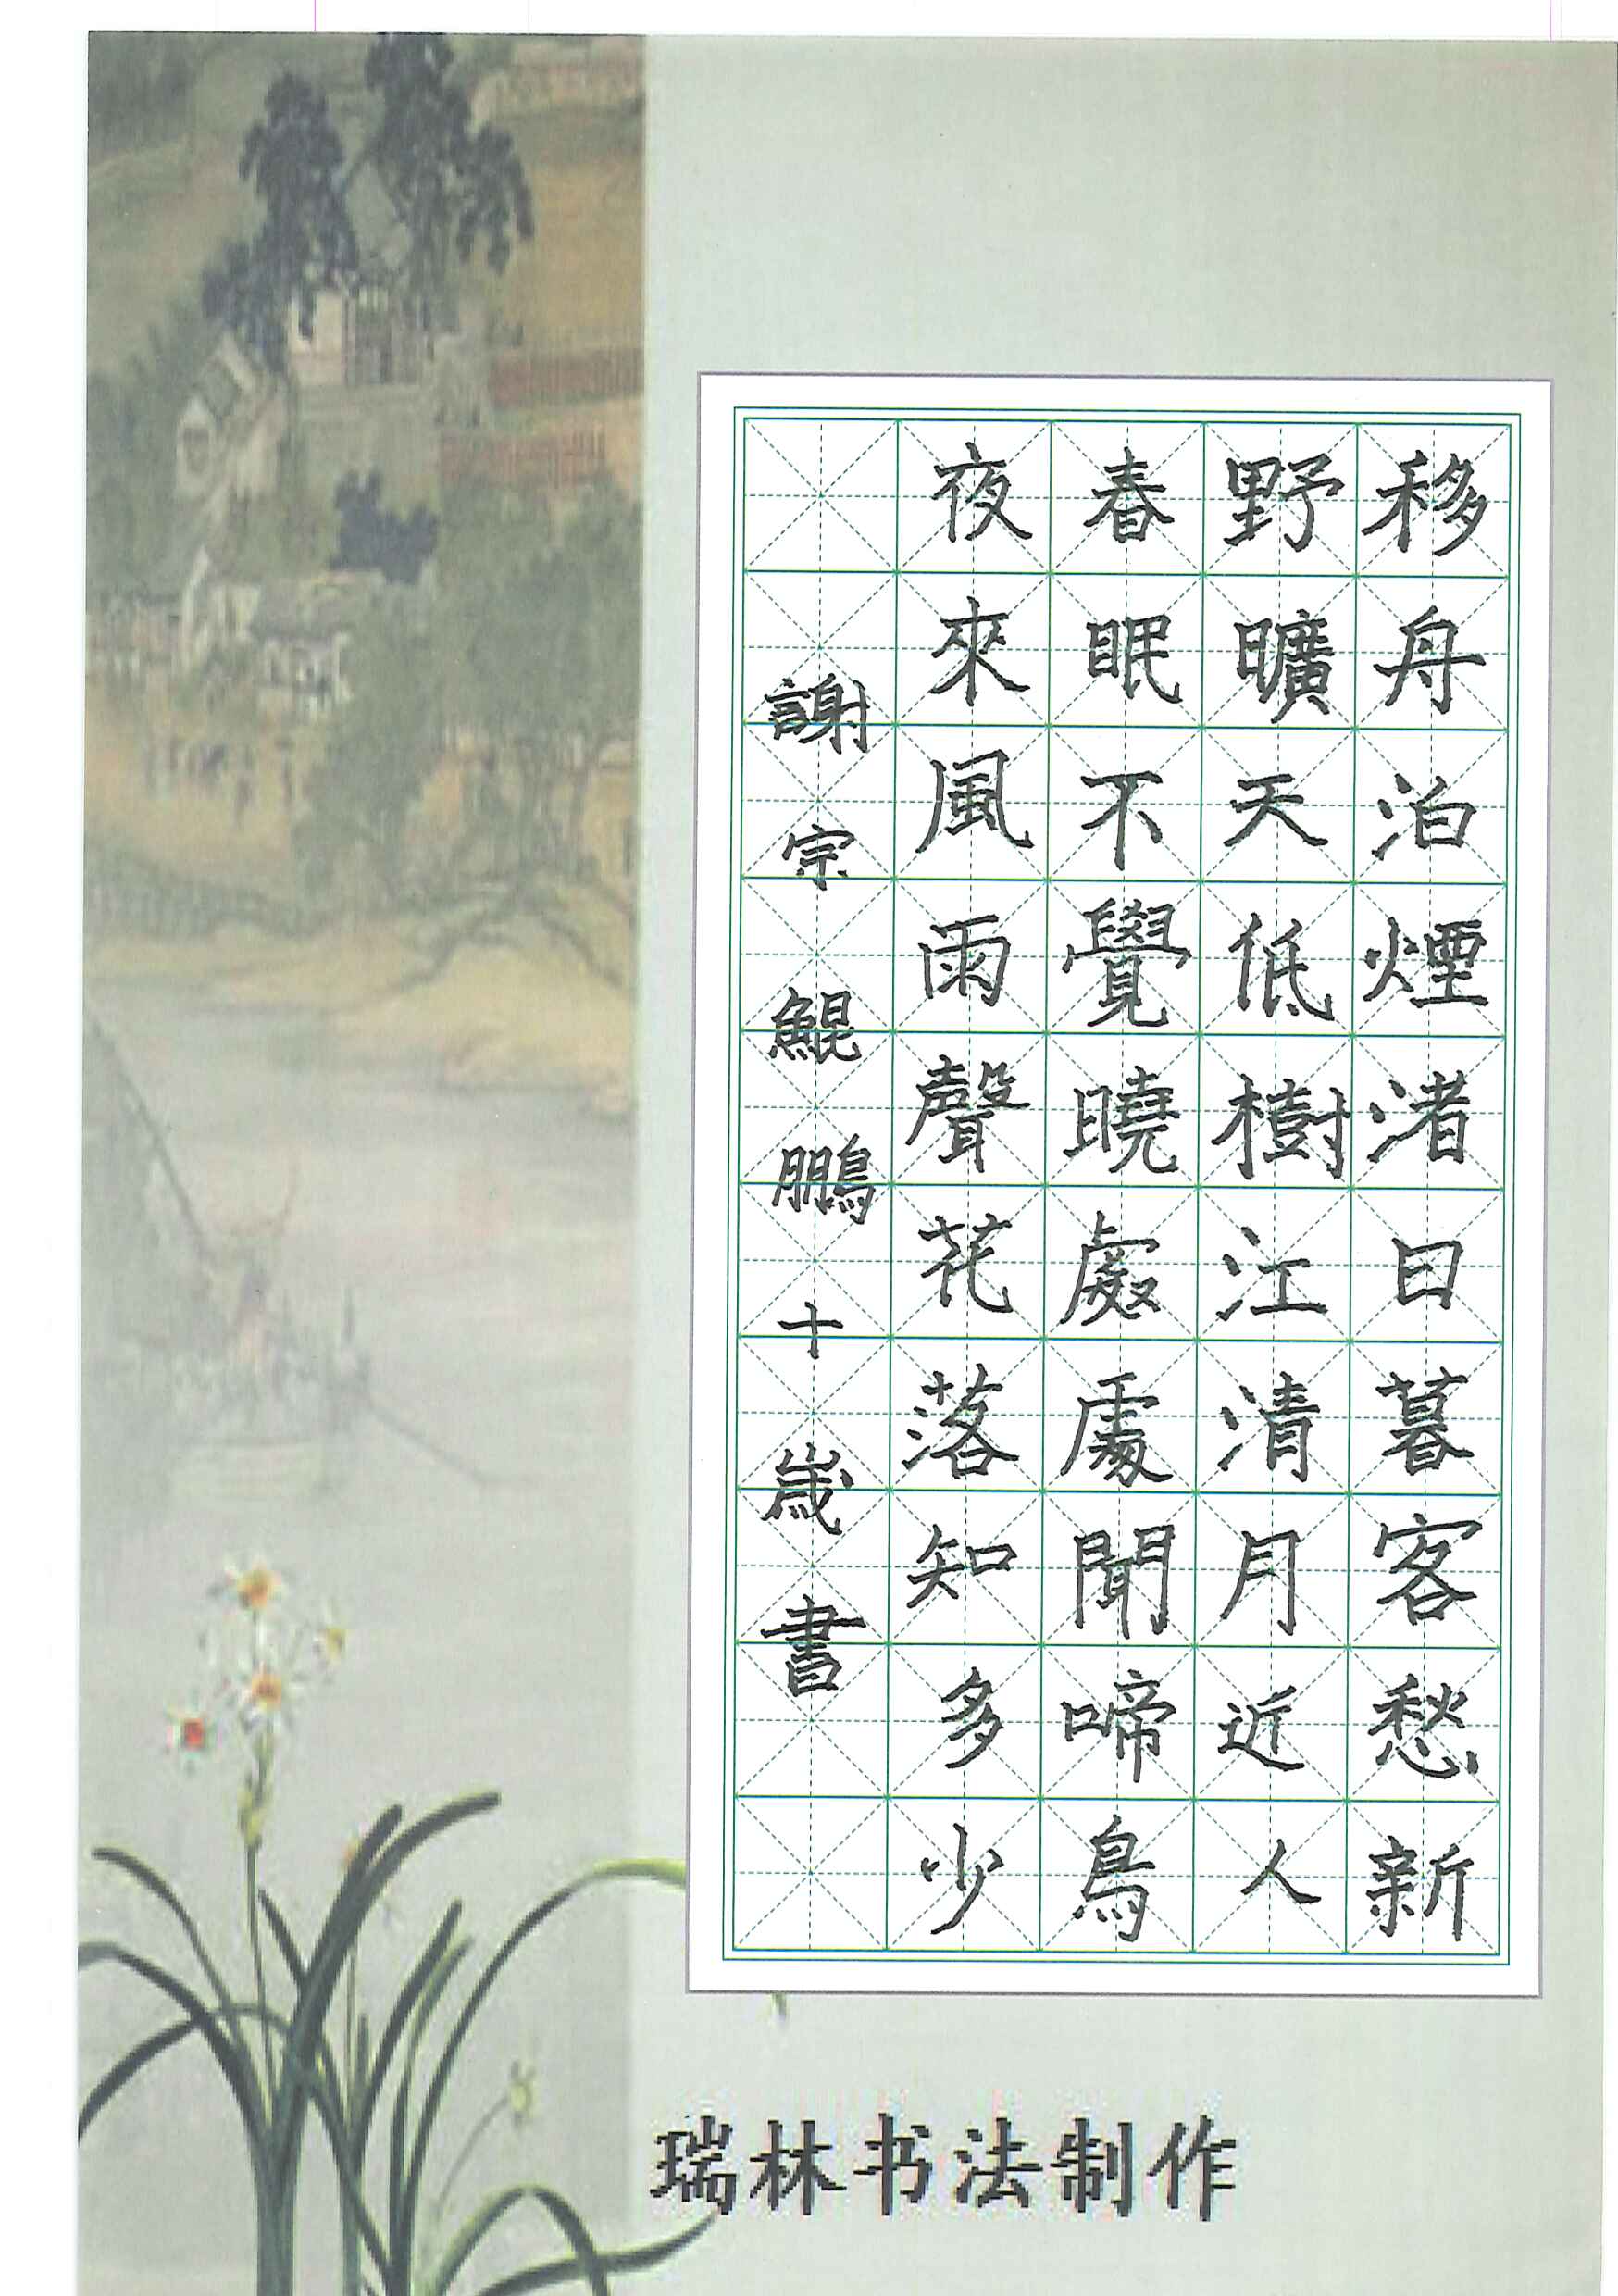 移舟泊煙渚日暮客愁新
野曠天低樹江清月近人
春眠不覺曉處處聞啼鳥
夜來風雨聲花落知多少
謝宗鯤鵬十歲書
瑞林书法制作